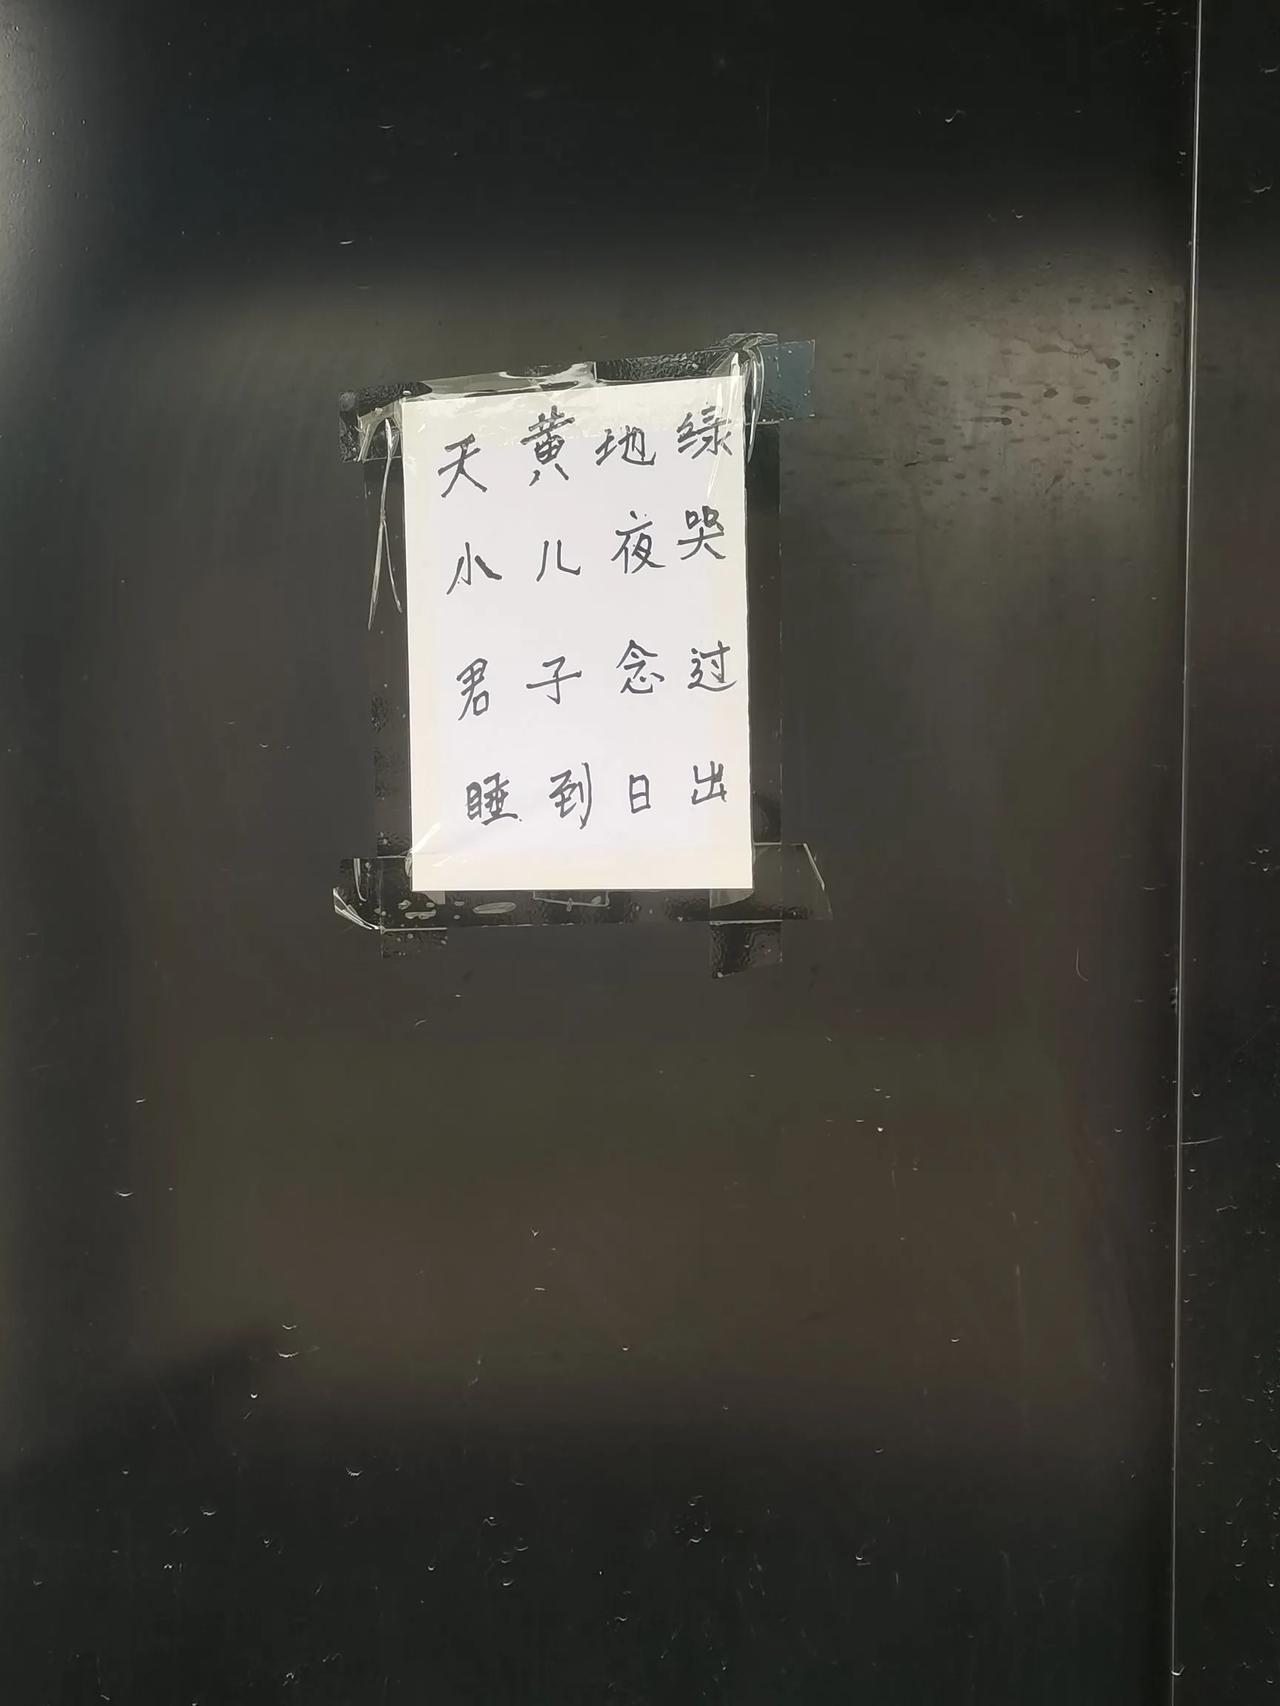 天黄地绿
小儿夜哭
君子念过
睡到日出